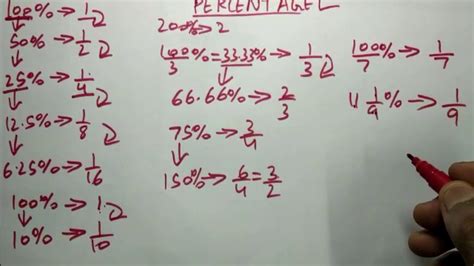 PERCENTAGE
100% → 1
50% → 1/2
25% → 1/4
12.5% → 1/8
6.25% → 1/16
100% → 1
10% → 1/10
200% → 2
100%/3 = 33.33% → 1/3
66.66% → 2/3
75% → 3/4
150% → 6/4 = 3/2
100%/7 → 1/7
11 1/9% → 1/9